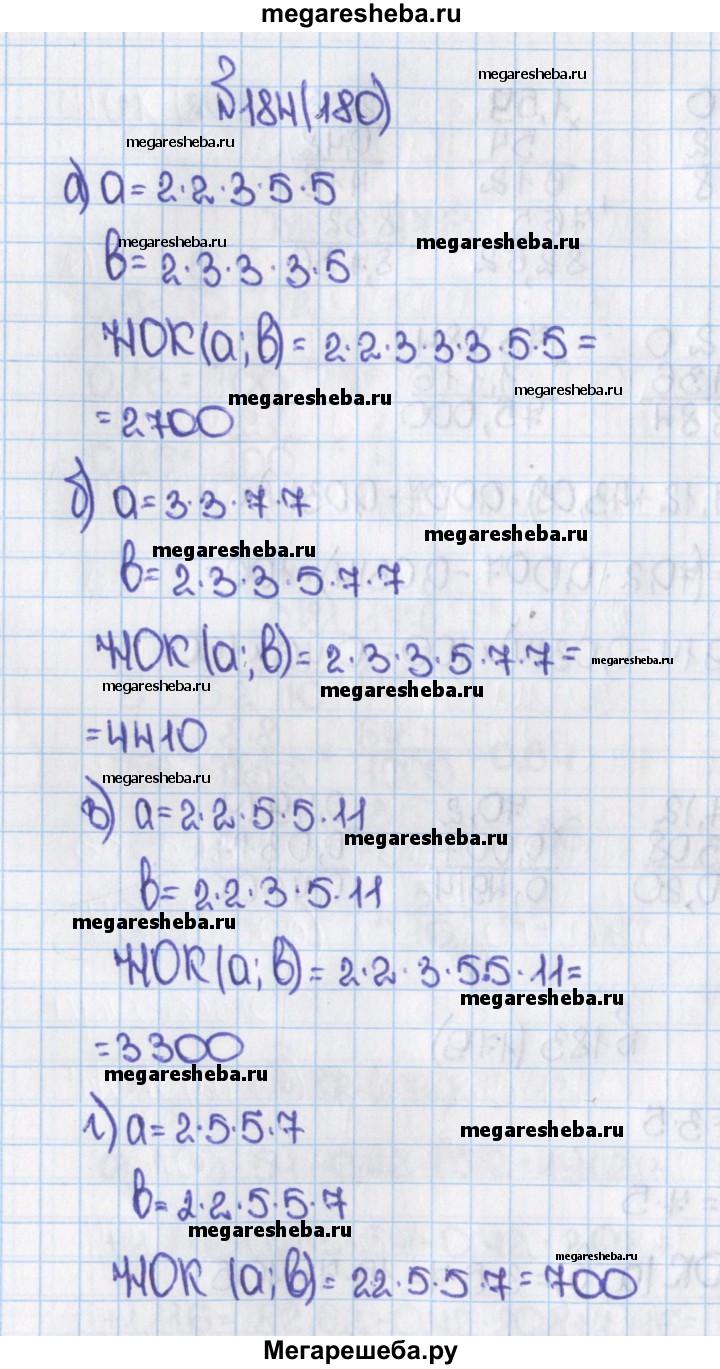 megaresheba.ru
№184(180)
megaresheba.ru
megaresheba.ru
а) a=2·2·3·5·5
megaresheba.ru
megaresheba.ru
b=2·3·3·3·5
НОК(a;b)=2·2·3·3·3·5·5=
megaresheba.ru
megaresheba.ru
=2700
б) a=3·3·7·7
megaresheba.ru
megaresheba.ru
b=2·3·3·5·7·7
НОК(a;b)=2·3·3·5·7·7=
megaresheba.ru
megaresheba.ru
megaresheba.ru
=4410
megaresheba.ru
в) a=2·2·5·5·11
megaresheba.ru
b=2·2·3·5·11
megaresheba.ru
НОК(a;b)=2·2·3·5·5·11=
megaresheba.ru
=3300
megaresheba.ru
г) a=2·5·5·7
megaresheba.ru
b=2·2·5·5·7
megaresheba.ru
megaresheba.ru
НОК(a;b)=22·5·5·7=700
Мегарешеба.ру